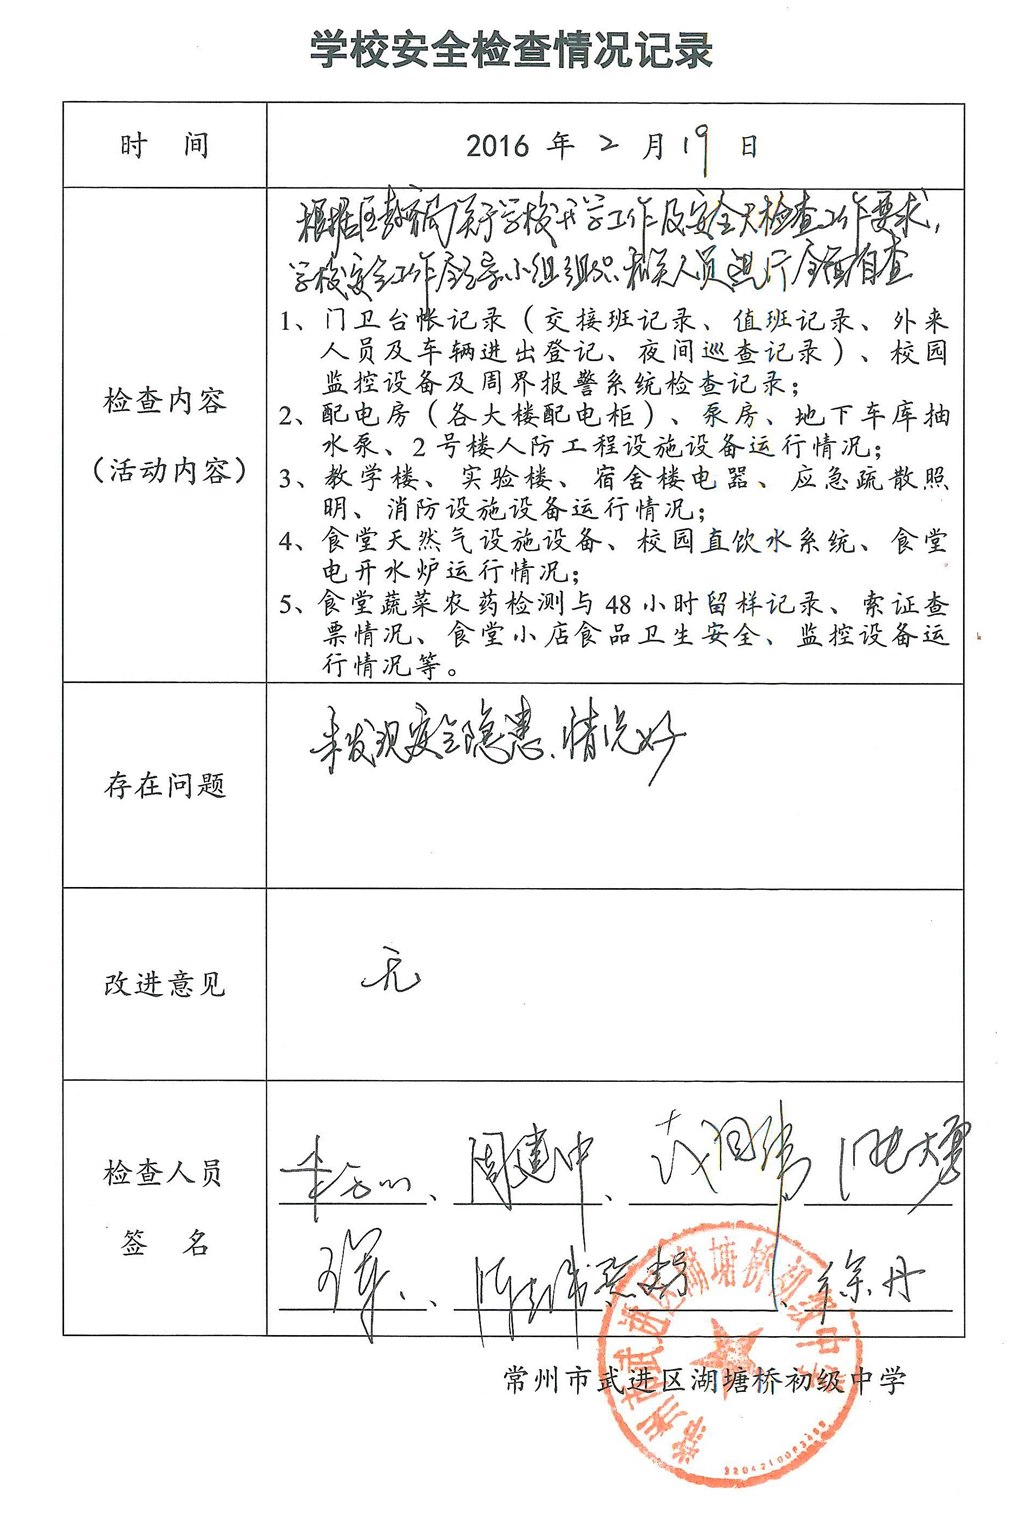 学校安全检查情况记录
时 间
2016 年 2 月 19 日
检查内容
（活动内容）
根据区教育局关于学校开学工作及安全大检查工作要求，
学校安全工作领导小组组织相关人员进行全面自查
1、门卫台帐记录（交接班记录、值班记录、外来
人员及车辆进出登记、夜间巡查记录）、校园
监控设备及周界报警系统检查记录；
2、配电房（各大楼配电柜）、泵房、地下车库抽
水泵、2 号楼人防工程设施设备运行情况；
3、教学楼、实验楼、宿舍楼电器、应急疏散照
明、消防设施设备运行情况；
4、食堂天然气设施设备、校园直饮水系统、食堂
电开水炉运行情况；
5、食堂蔬菜农药检测与 48 小时留样记录、索证查
票情况、食堂小店食品卫生安全、监控设备运
行情况等。
存在问题
未发现安全隐患、情况好
改进意见
无
检查人员
签 名
周建中
徐丹
常州市武进区湖塘桥初级中学
常州市武进区湖塘桥初级中学